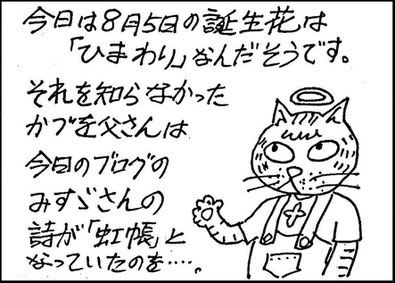 今日は8月5日の誕生花は
「ひまわり」なんだそうです。
それを知らなかった
かブを父さんは
今日のブログの
みすゞさんの
詩が「虹帳」と
なっていたのを……。